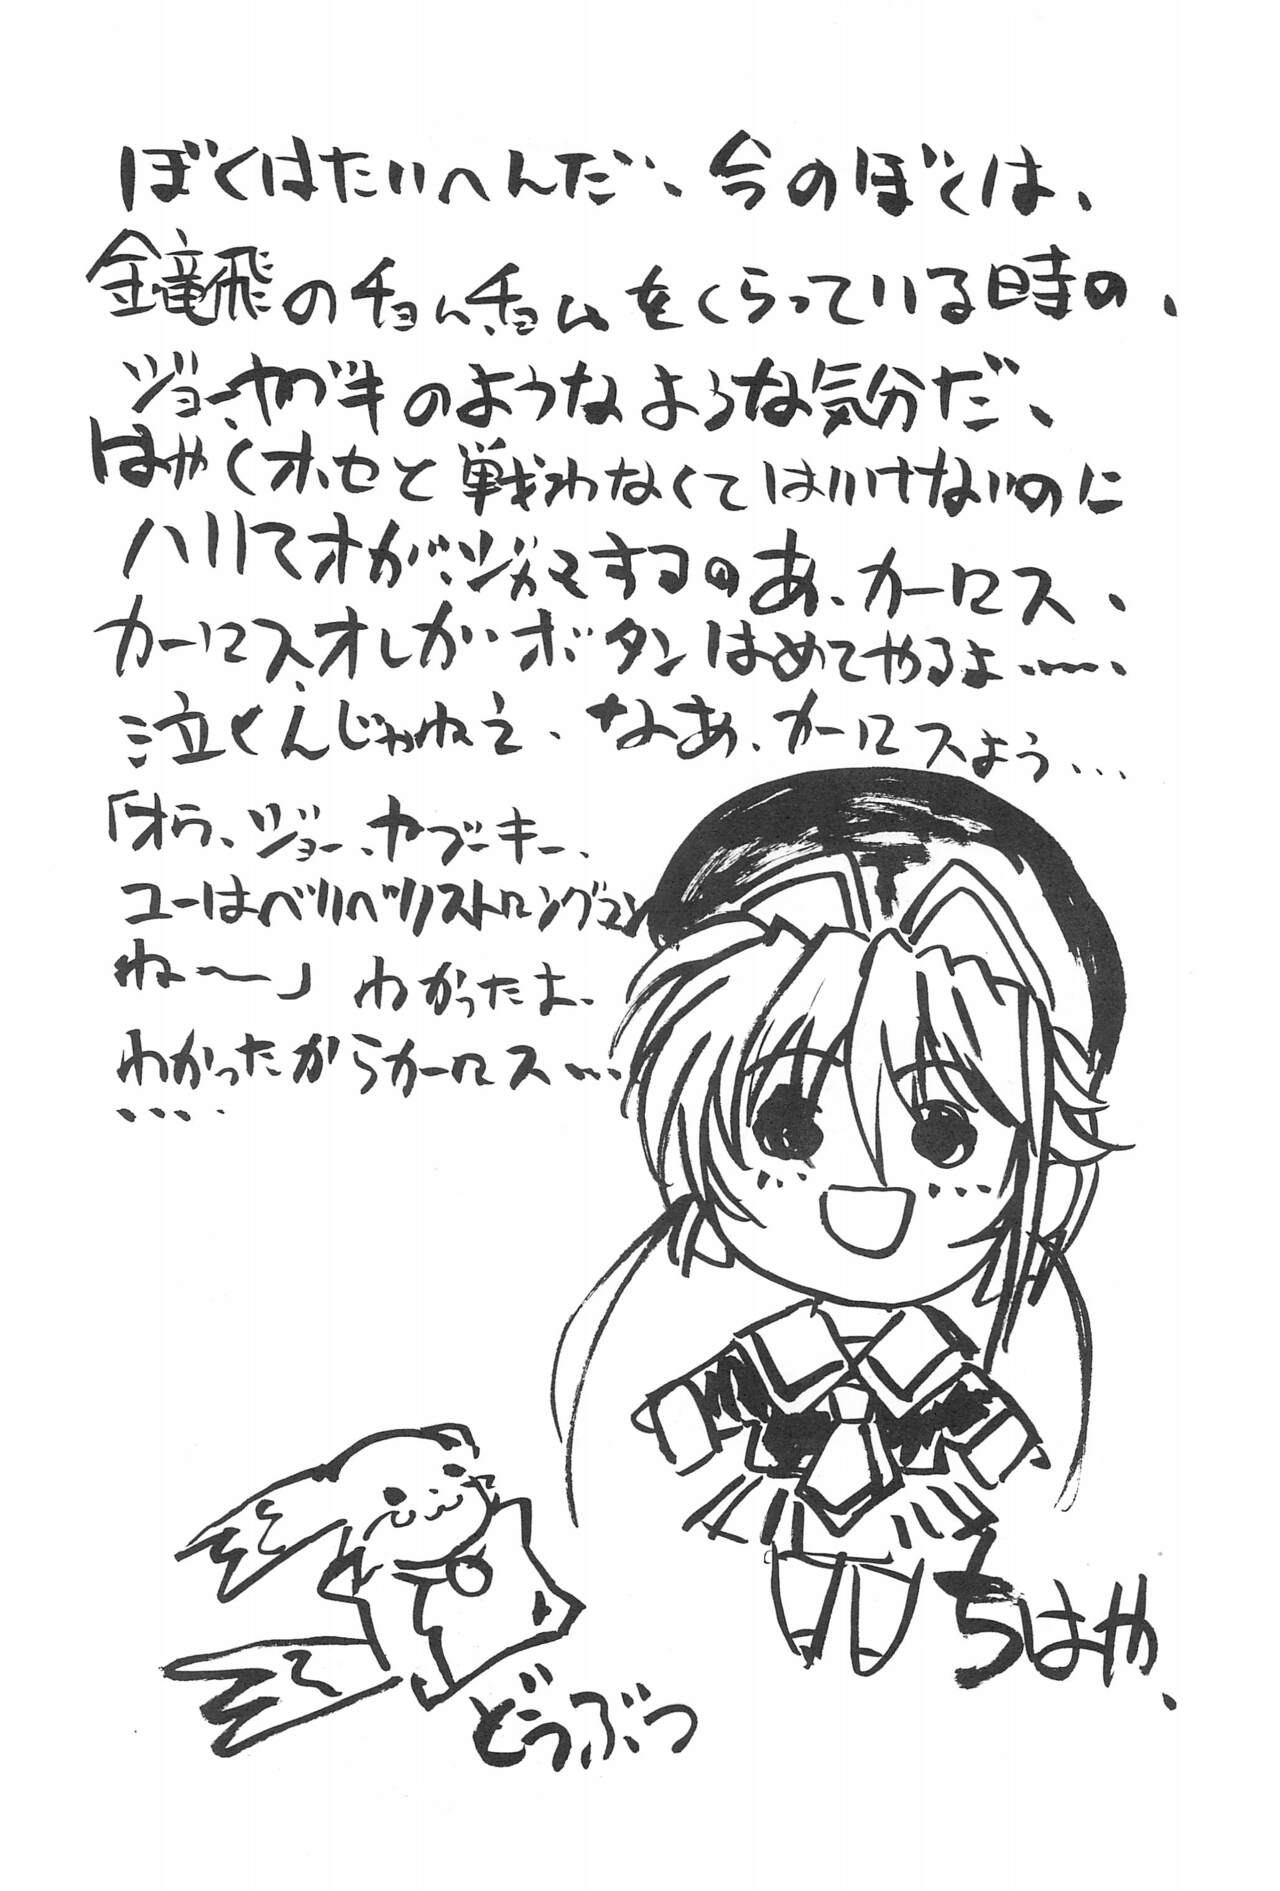 ぼくはたいへんだ、今のぼくは、
金竜飛のチョムチョムをくらっている時の、
ジョー、ヤブキのようなような気分だ、
はやくホセと戦わなくてはいけないのに
ハリマオがジャマするのあ、カーロス、
カーロス、オレがボタンはめてやるよ……、
泣くんじゃねえ、なあ、カーロスよう…
「オラ、ジョー、ヤブーキー、
ユーはベリベリストロングマン
ね〜」わかったよ、
わかったからカーロス……
‥‥
ちはや、
どうぶつ